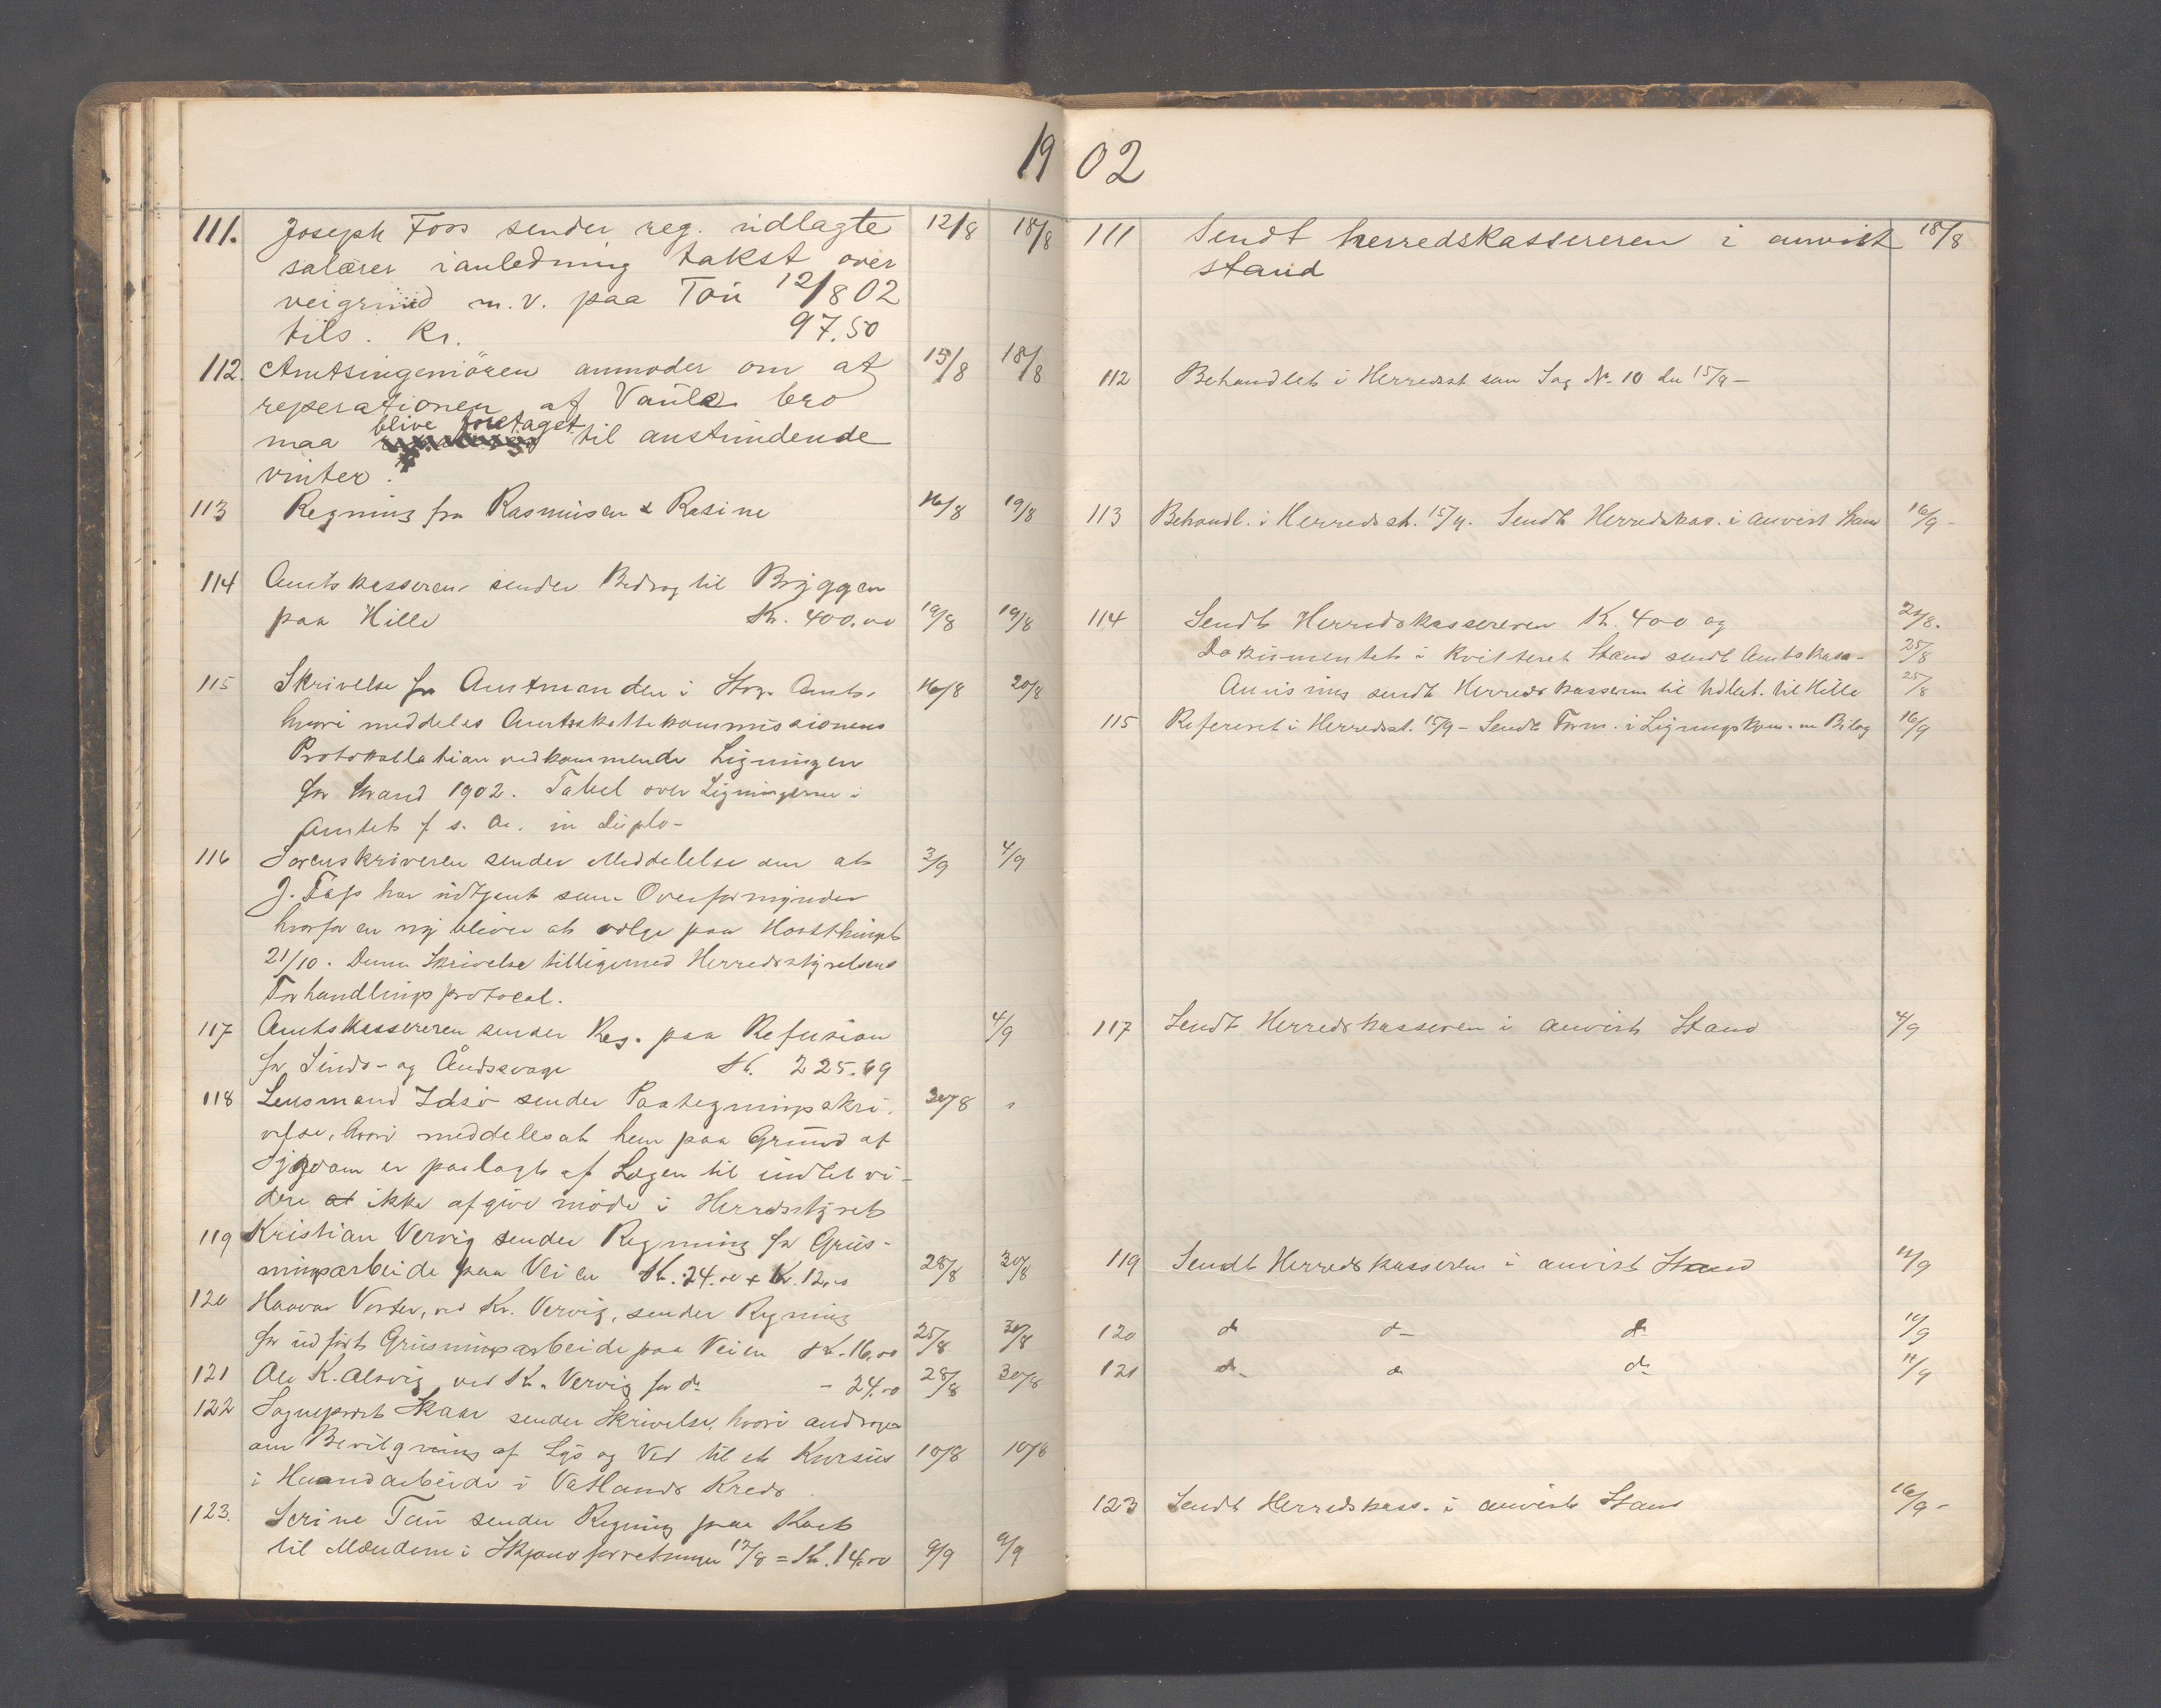 1902
111. Joseph Foss sender reg. udlagte 12/8 18/8
salærer ianledning takst over
veigrund m.v. paa Tou 12/8 02
tils. Kr. 97.50
112. Amtsingeniören anmoder om at 15/8 18/8
reperationen af Vaula bro
maa blive foretaget til anstundende
vinter.
113 Regning fra Rasmusen & Rasine 16/8 19/8
114 Amtskasseren sender Bidrag til Bryggen
paa Hille Kr. 400.00 19/8 19/8
115 Skrivelse fra Amtmanden i Stvgr. Amt. 16/8 20/8
hvori meddeles Amtsskattekommissionens
Protokollation vedkommende Ligningen
for Strand 1902. Tabel over Ligningerne i
Amtet f. s. A. in duplo-
116 Sorenskriveren sender Meddelelse om at 3/9 4/9
J. Foss har udtjent som Overformynder
hvorfor en ny bliver at vælge paa Høstthinget
21/10. Denne Skrivelse tilligemed Herredsstyrelsens
Forhandlingsprotocol.
117 Amtskassereren sender Reg. paa Refusion 4/9
for Sinds- og Åndssvage Kr. 225.69
118 Lensmand Idsö sender Paategningsskri- 30/8 "
velse, hvori meddeles at han paa Grund af
Sygdom er paalagt af Lægen til indtil vi-
dere at ikke afgive möde i Herredsstyret
119 Kristian Vervig sender Regning for Grus-
ningsarbeide paa Veien Kr. 24.00 + Kr. 12.00 28/8 30/8
120 Haavar Voster, ved Kr. Vervig, sender Regning
for udført Grusningsarbeide paa Veien Kr. 16.00 25/8 30/8
121 Ole K. Alsvig ved Kr. Vervig for do - 24.00 28/8 30/8
122 Sogneprest Skaar sender Skrivelse, hvori androges
om Bevilgning af Lys og Ved til et Kursus 10/8 10/8
i Haandarbeide i Vatlands Kreds.
123. Serine Tou sender Regning paa Kost
til Mændene i Skjønsforretningen 12/8 = Kr. 14.00 9/9 9/9
111 Sendt herredskassereren i anvist 18/8
stand
112 Behandlet i Herredsst som Sag No 10 den 15/9 -
113 Behandl. i Herredsst. 15/9. Sendt Herredskas. i anvist Stand 16/9 -
114 Sendt Herredskassereren Kr. 400 og 21/8.
Dokumentet i kvitteret Stand sendt Amtskass- 25/8
Anvisning sendt Herredskasseren til Udbet. til Hille 25/8
115 Refereret i Herredsst. 15/9 - Sendt Form. i Ligningskom. m Bilag 16/9
117 Sendt Herredskasseren i anvist Stand 4/9
119 Sendt Herredskasseren i anvist Stand 11/9
120 do do do 11/9
121 do do do 11/9
123 Sendt Herredskass. i anvist Stand 16/9 -